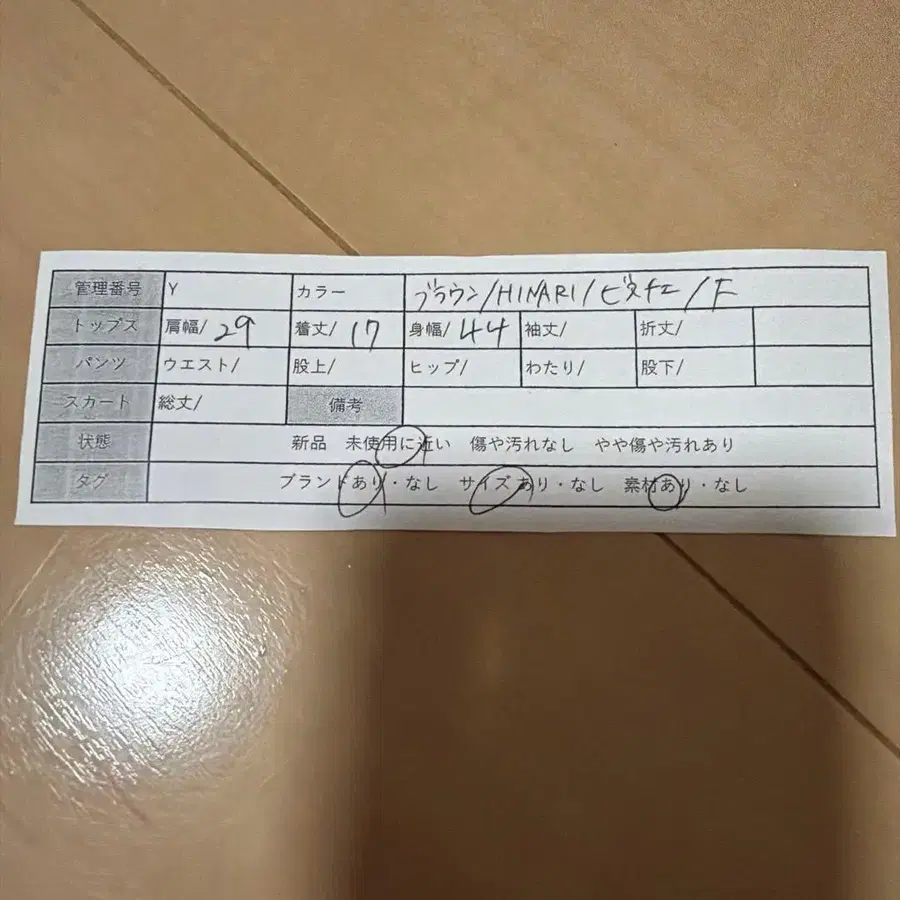 管理番号 Y カラー ブラウン/HINARI/ビスチェ/F
トップス 肩幅/ 29 着丈/ 17 身幅/ 44 袖丈/ 折丈/
パンツ ウエスト/ 股上/ ヒップ/ わたり/ 股下/
スカート 総丈/ 備考
状態 新品 未使用に近い 傷や汚れなし やや傷や汚れあり
タグ ブランドあり・なし サイズあり・なし 素材あり・なし